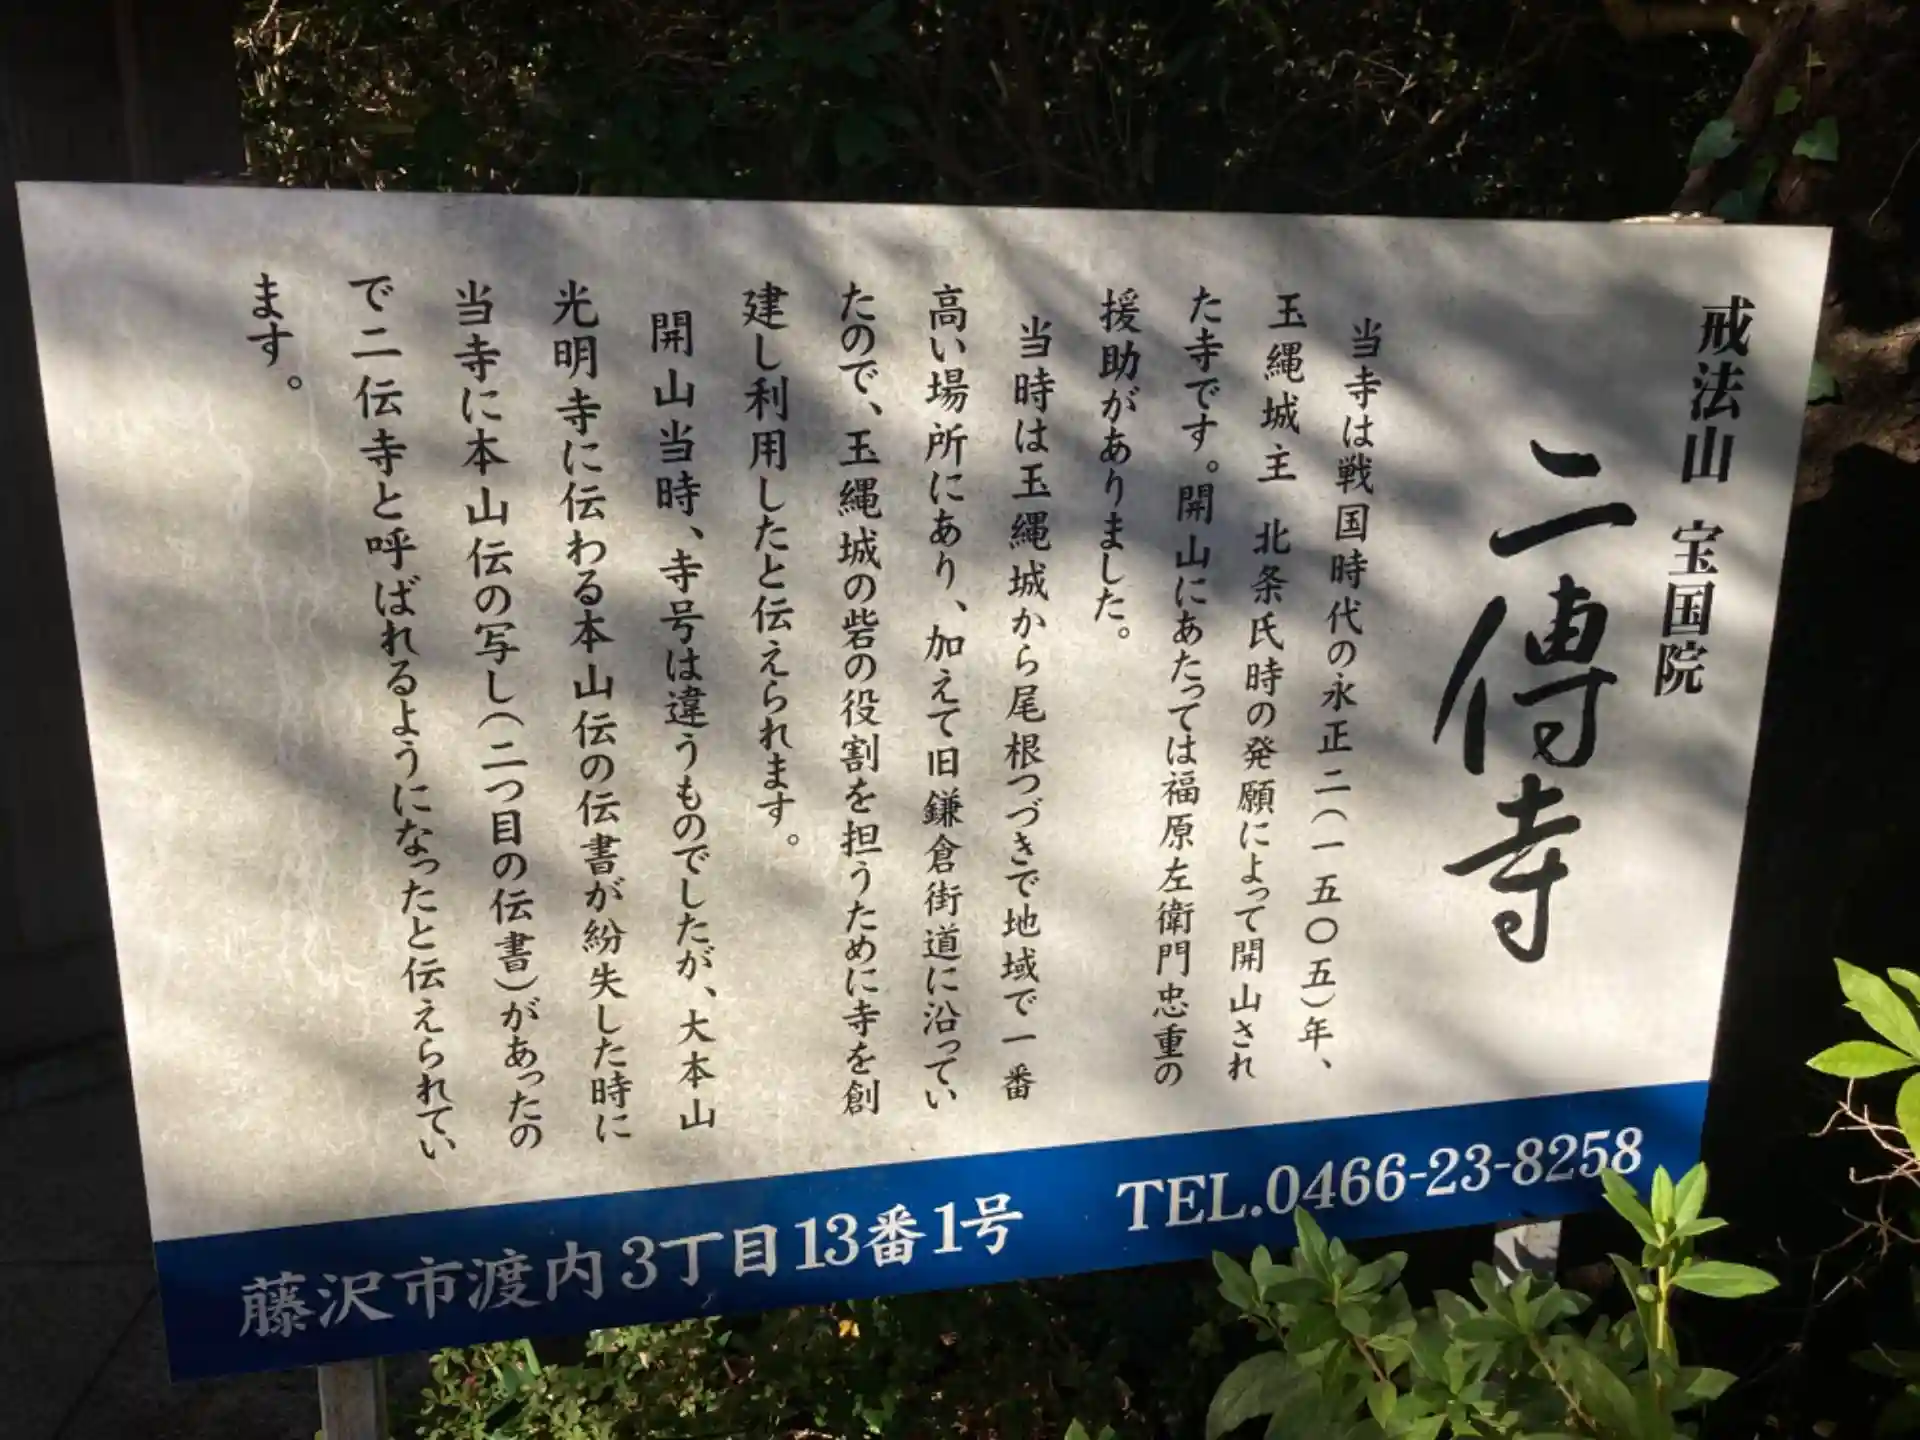 戒法山　宝国院
二傳寺
当寺は戦国時代の永正二（一五〇五）年、
玉縄城主　北条氏時の発願によって開山され
た寺です。開山にあたっては福原左衛門忠重の
援助がありました。
当時は玉縄城から尾根つづきで地域で一番
高い場所にあり、加えて旧鎌倉街道に沿ってい
たので、玉縄城の砦の役割を担うために寺を創
建し利用したと伝えられます。
開山当時、寺号は違うものでしたが、大本山
光明寺に伝わる本山伝の伝書が紛失した時に
当寺に本山伝の写し（二つ目の伝書）があったの
で二伝寺と呼ばれるようになったと伝えられてい
ます。
藤沢市渡内3丁目13番1号　TEL.0466-23-8258